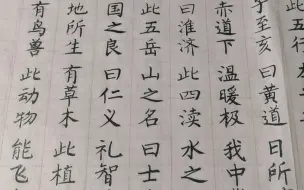 此五行
子至亥曰黄道日所
赤道下温暖极我中
曰淮济此四渎水之
此五岳山之名曰士
国之良曰仁义礼智
地所生有草木此植
有鸟兽此动物能飞